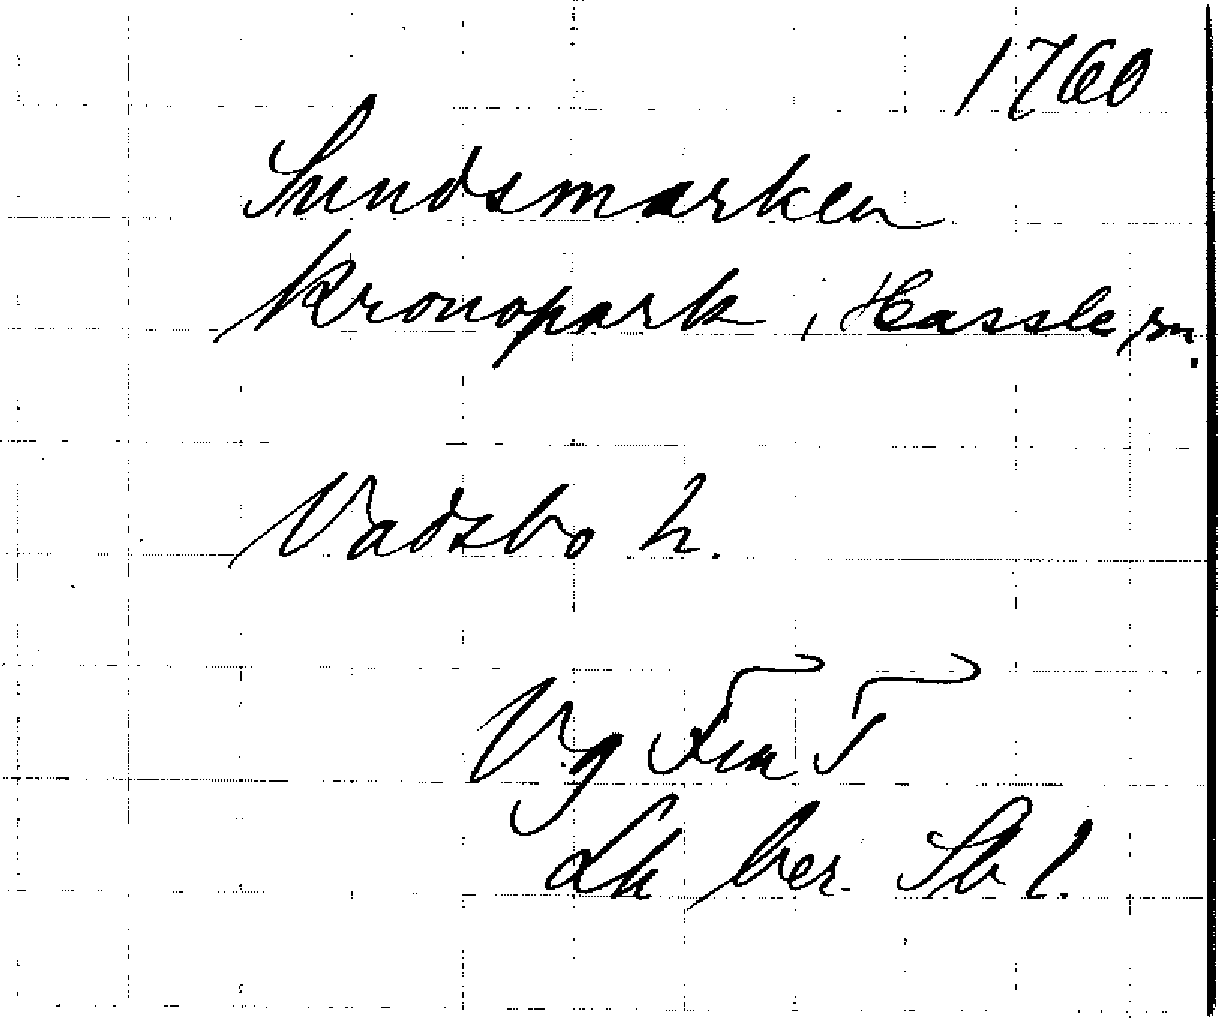 1760
Sundsmarken
kronopark, Hassle sn.
Vadsbo h.
Vg Fin T
Lk ber. Sb 1.